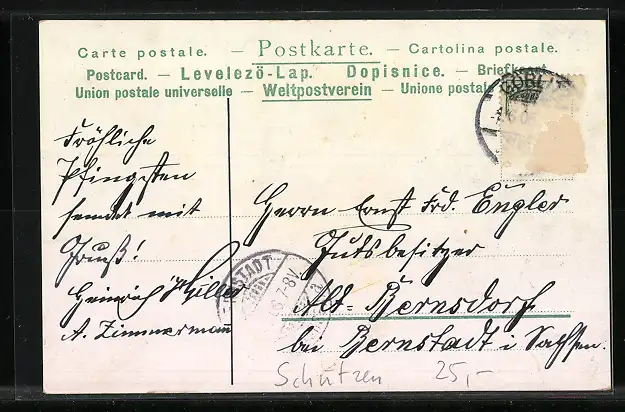 Carte postale. — Postkarte. — Cartolina postale.
Postcard. — Levelezö-Lap. Dopisnice. — Briefkaart
Union postale universelle — Weltpostverein — Unione postale
GÖRL
Fröhliche
Pfingsten
sendet mit
Gruß!
Heinrich Hiller
A. Zimmermann
Herrn Ernst Frd. Engler
Gutsbesitzer
Alt-Bernsdorf
bei Bernstadt i Sachsen.
STADT
7-8V.
Schützen 25,-